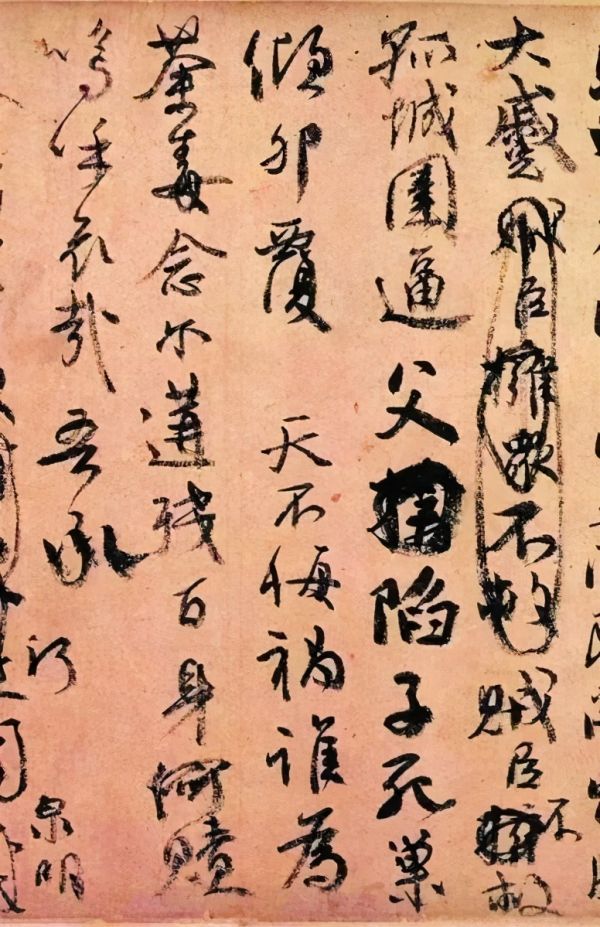 大蹙賊臣擁衆不救賊臣不救
孤城圍逼父陷子死巢
傾卵覆 天不悔禍誰為
荼毒念爾遘殘百身何贖
嗚呼哀哉吾承 泉明